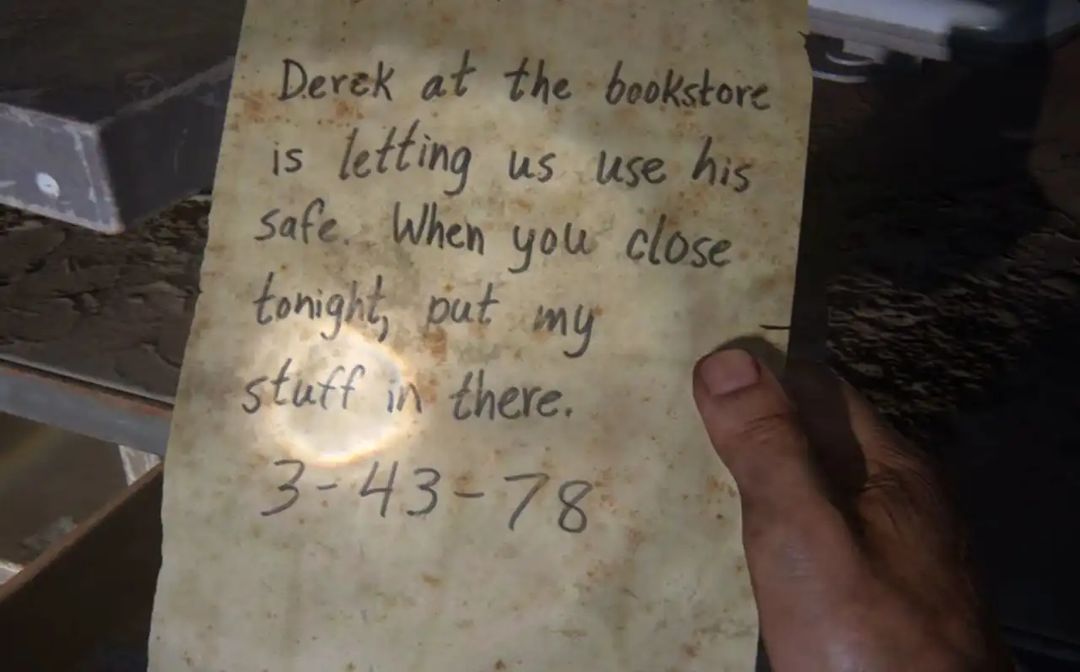 Derek at the bookstore
is letting us use his
safe. When you close
tonight, put my
stuff in there.
3-43-78